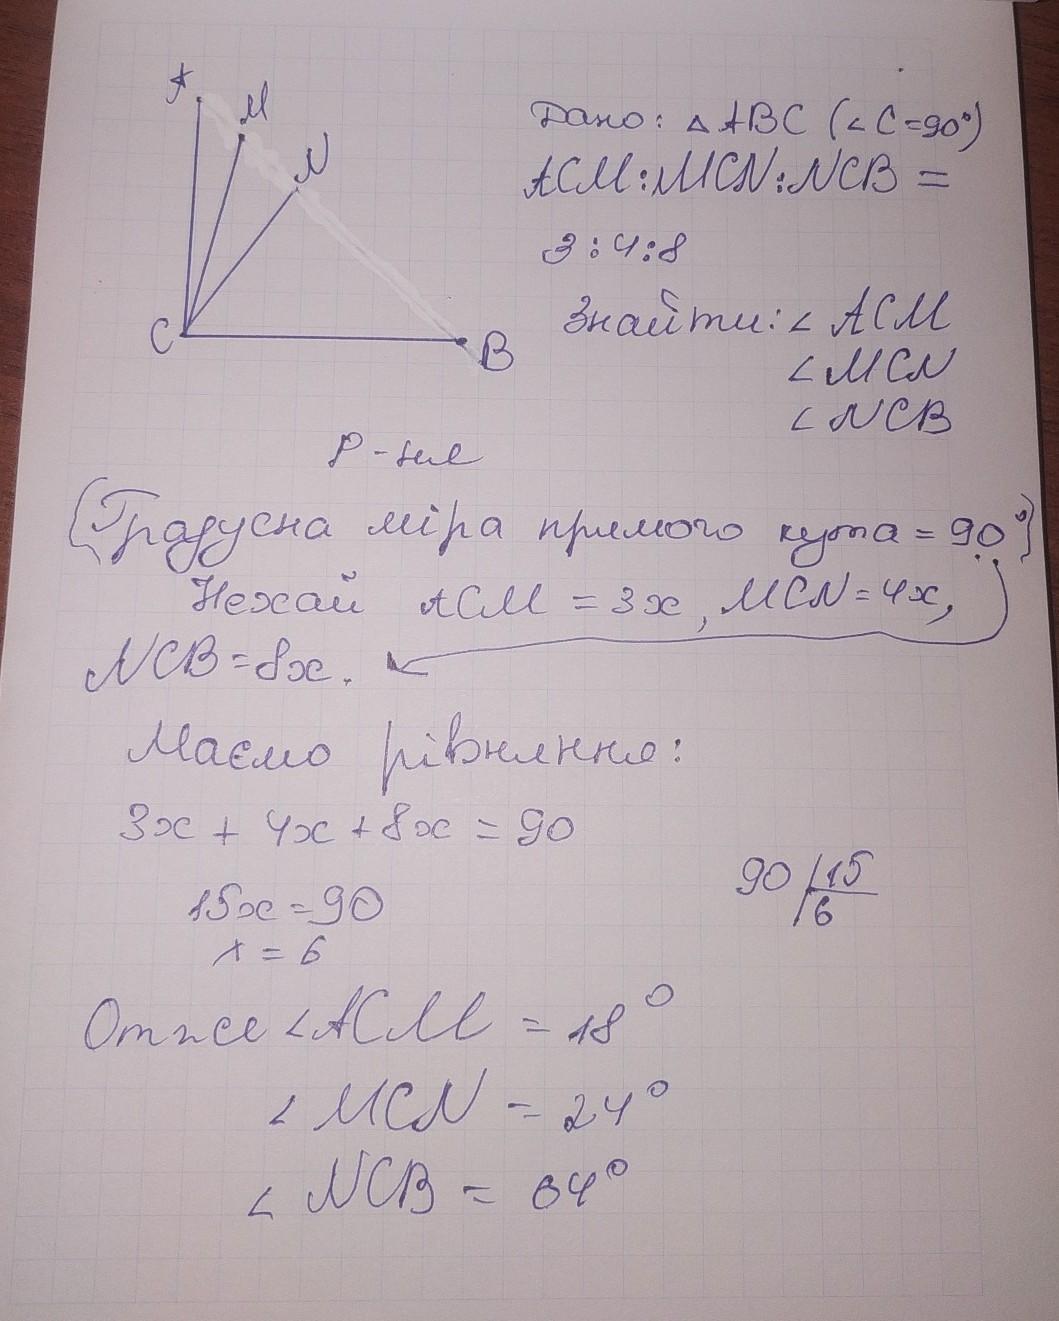 A
M
N
C
B
Дано: △ABC (∠C=90°)
ACM:MCN:NCB =
3:4:8
Знайти: ∠ACM
∠MCN
∠NCB
Р-ня
(Градусна міра прямого кута = 90°)
Нехай ACM = 3x, MCN = 4x,
NCB = 8x.
Маємо рівняння:
3x + 4x + 8x = 90
15x = 90
x = 6
90 15
6
Отже ∠ACM = 18°
∠MCN = 24°
∠NCB = 64°